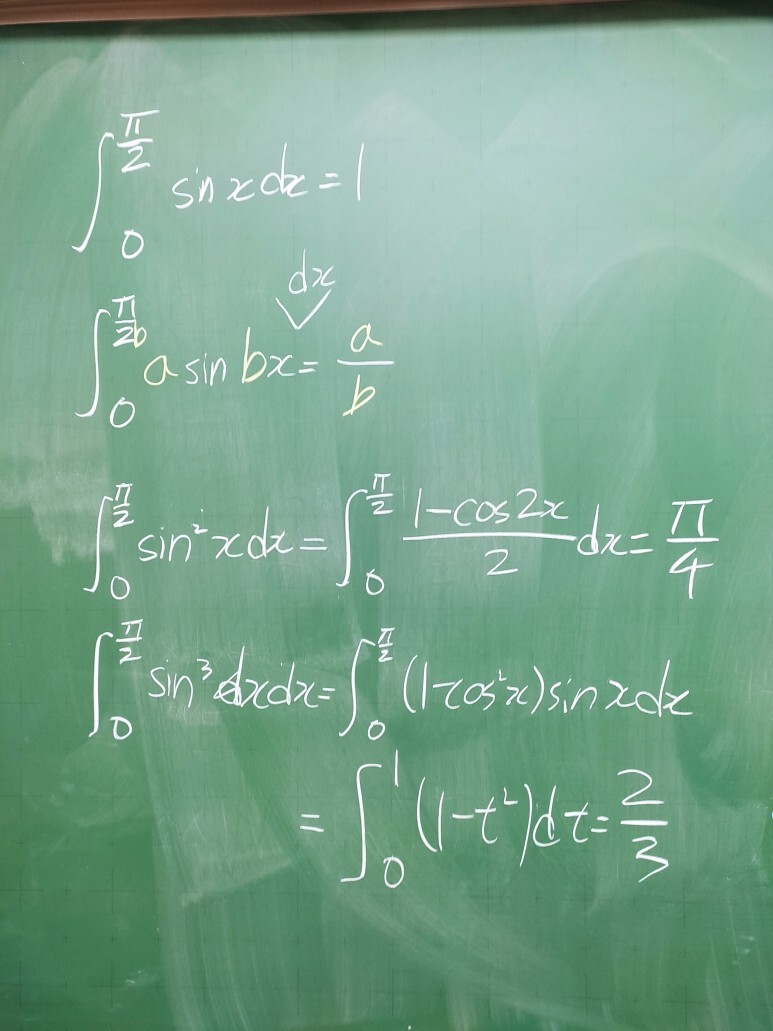 ∫₀^{π/2} sin x dx = 1
dx
∫₀^{π/2b} a sin bx = a/b
∫₀^{π/2} sin²x dx = ∫₀^{π/2} (1-cos2x)/2 dx = π/4
∫₀^{π/2} sin³ dxdx = ∫₀^{π/2} (1-cos²x) sin x dx
= ∫₀¹ (1-t²)dt = 2/3